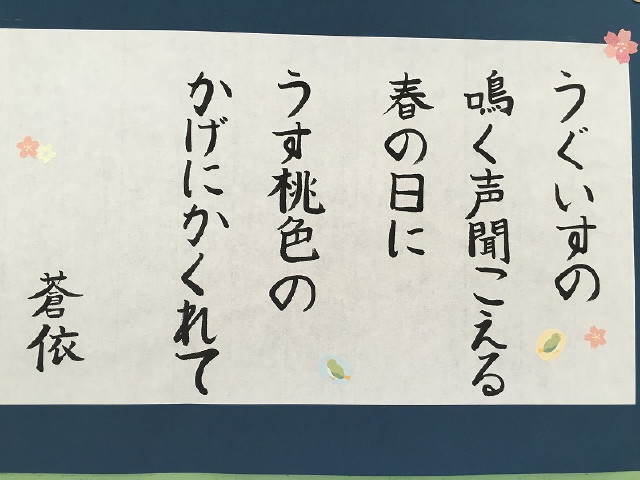 うぐいすの
鳴く声聞こえる
春の日に
うす桃色の
かげにかくれて
蒼依